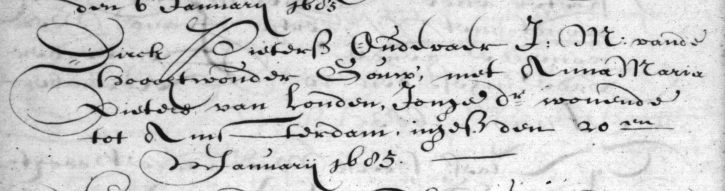 den 6 Januarij 1685
Dirck Pieterß Oudewaer J: M: vande
Hooghtwouder Gouw, met Anna Maria
Pieters van Londen, Jonge dr wonende
tot Amsterdam, ingeß den 20 en
Januarij 1685.